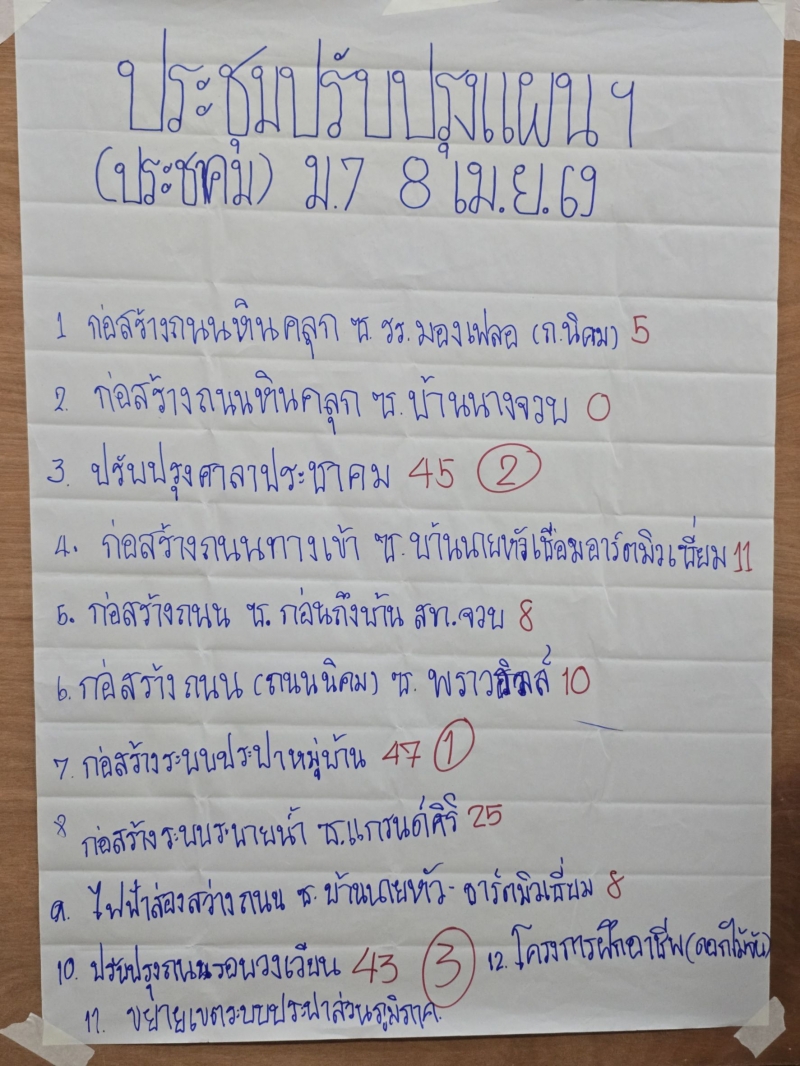 ประชุมปรับปรุงแผนฯ
(ประชาคม) ม.7 8 เม.ย.69
1 ก่อสร้างถนนหินคลุก ซ.รร.มองเฟลอ (ถ.นิคม) 5
2. ก่อสร้างถนนหินคลุก ซ.บ้านนางจวบ 0
3. ปรับปรุงศาลาประชาคม 45 2
4. ก่อสร้างถนนทางเข้า ซ.บ้านนายหัวเชื่อมอาร์ตมิวเซี่ยม 11
5. ก่อสร้างถนน ซ.ก่อนถึงบ้าน สท.จวบ 8
6. ก่อสร้างถนน (ถนนนิคม) ซ. 10
7. ก่อสร้างระบบประปาหมู่บ้าน 47 1
8 ก่อสร้างระบบระบายน้ำ ซ.แกรนด์ศิริ 25
9. ไฟฟ้าส่องสว่างถนน ซ.บ้านนายหัว - อาร์ตมิวเซี่ยม 8
10. ปรับปรุงถนนรอบวงเวียน 43 3
12. โครงการฝึกอาชีพ (ดอกไม้จัน)
11. ขยายเขตระบบประปาส่วนภูมิภาค.